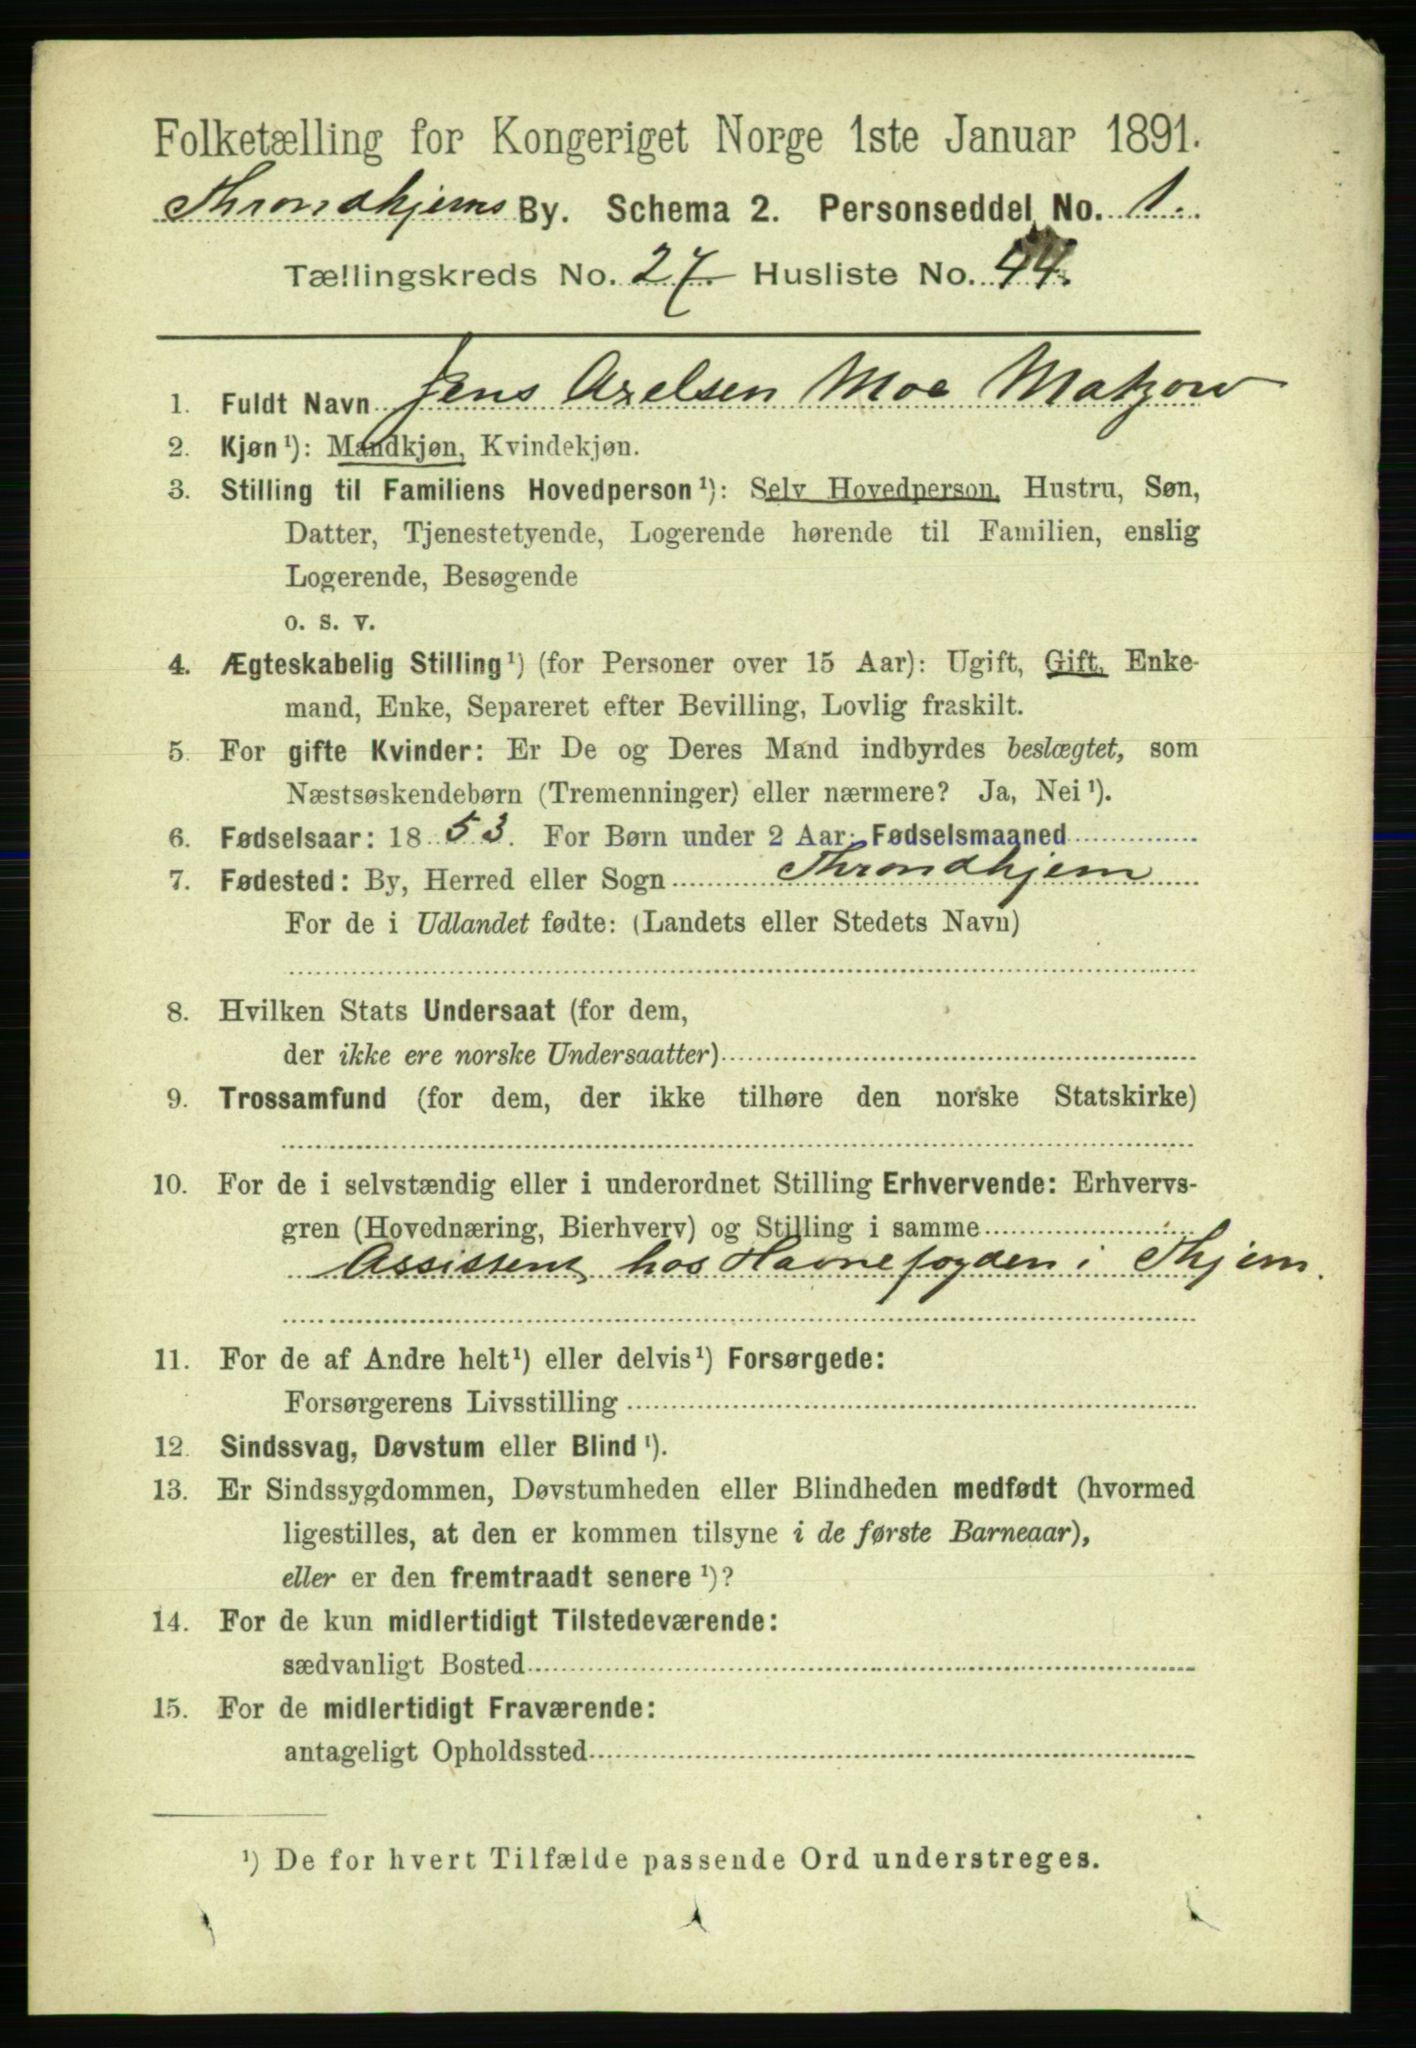 Folketælling for Kongeriget Norge 1ste Januar 1891.
Throndhjems By. Schema 2. Personseddel No. 1.
Tællingskreds No. 27. Husliste No. 44.
1. Fuldt Navn Jens Axelsen Moe Matzow
2. Kjøn¹): Mandkjøn, Kvindekjøn.
3. Stilling til Familiens Hovedperson¹): Selv Hovedperson, Hustru, Søn,
Datter, Tjenestetyende, Logerende hørende til Familien, enslig
Logerende, Besøgende
o. s. v.
4. Ægteskabelig Stilling¹) (for Personer over 15 Aar): Ugift, Gift, Enke-
mand, Enke, Separeret efter Bevilling, Lovlig fraskilt.
5. For gifte Kvinder: Er De og Deres Mand indbyrdes beslægtet, som
Næstsøskendebørn (Tremenninger) eller nærmere? Ja, Nei¹).
6. Fødselsaar: 1853. For Børn under 2 Aar: Fødselsmaaned
7. Fødested: By, Herred eller Sogn Throndhjem
For de i Udlandet fødte: (Landets eller Stedets Navn)
8. Hvilken Stats Undersaat (for dem,
der ikke ere norske Undersaatter)
9. Trossamfund (for dem, der ikke tilhøre den norske Statskirke)
10. For de i selvstændig eller i underordnet Stilling Erhvervende: Erhvervs-
gren (Hovednæring, Bierhverv) og Stilling i samme
Assistent hos Havnefogden i Thjem.
11. For de af Andre helt¹) eller delvis¹) Forsørgede:
Forsørgerens Livsstilling
12. Sindssvag, Døvstum eller Blind¹).
13. Er Sindssygdommen, Døvstumheden eller Blindheden medfødt (hvormed
ligestilles, at den er kommen tilsyne i de første Barneaar),
eller er den fremtraadt senere¹)?
14. For de kun midlertidigt Tilstedeværende:
sædvanligt Bosted
15. For de midlertidigt Fraværende:
antageligt Opholdssted
¹) De for hvert Tilfælde passende Ord understreges.